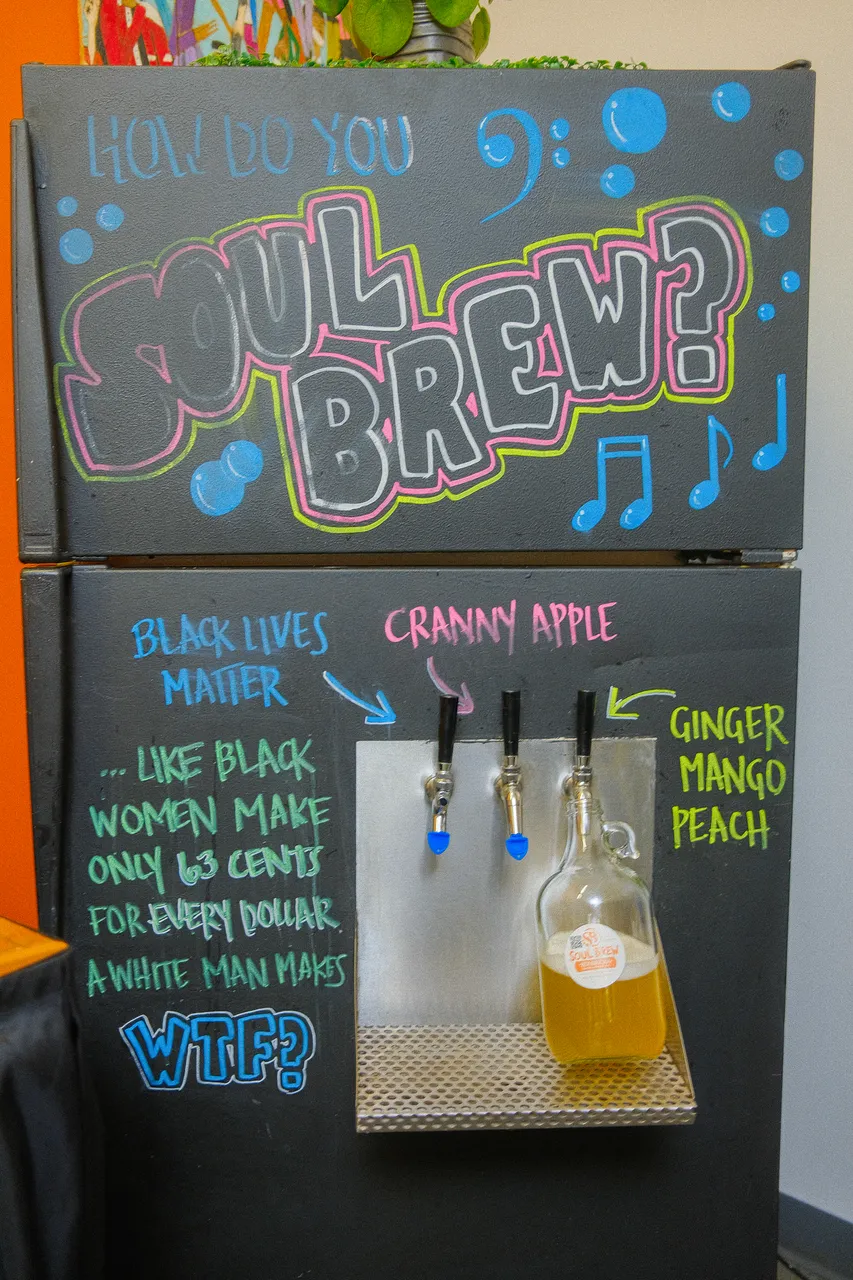 HOW DO YOU
SOUL
BREW?
BLACK LIVES
MATTER
CRANNY APPLE
GINGER
MANGO
PEACH
... LIKE BLACK
WOMEN MAKE
ONLY 63 CENTS
FOR EVERY DOLLAR
A WHITE MAN MAKES
WTF?
SB
SOUL BREW